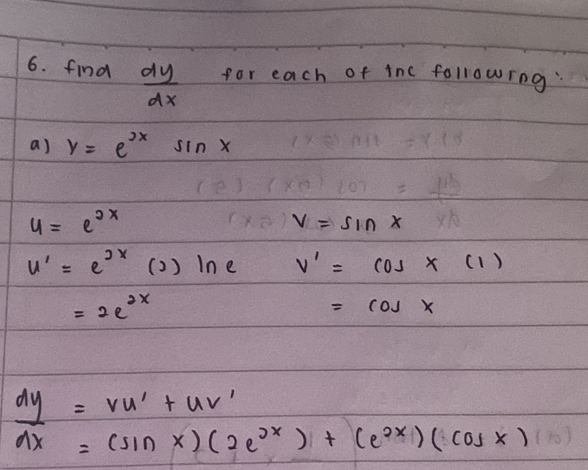 6. find dy/dx for each of the following:
a) y = e^2x sin x
u = e^2x v = sin x
u' = e^2x (2) ln e v' = cos x (1)
= 2e^2x = cos x
dy/dx = vu' + uv'
= (sin x)(2e^2x) + (e^2x)(cos x)